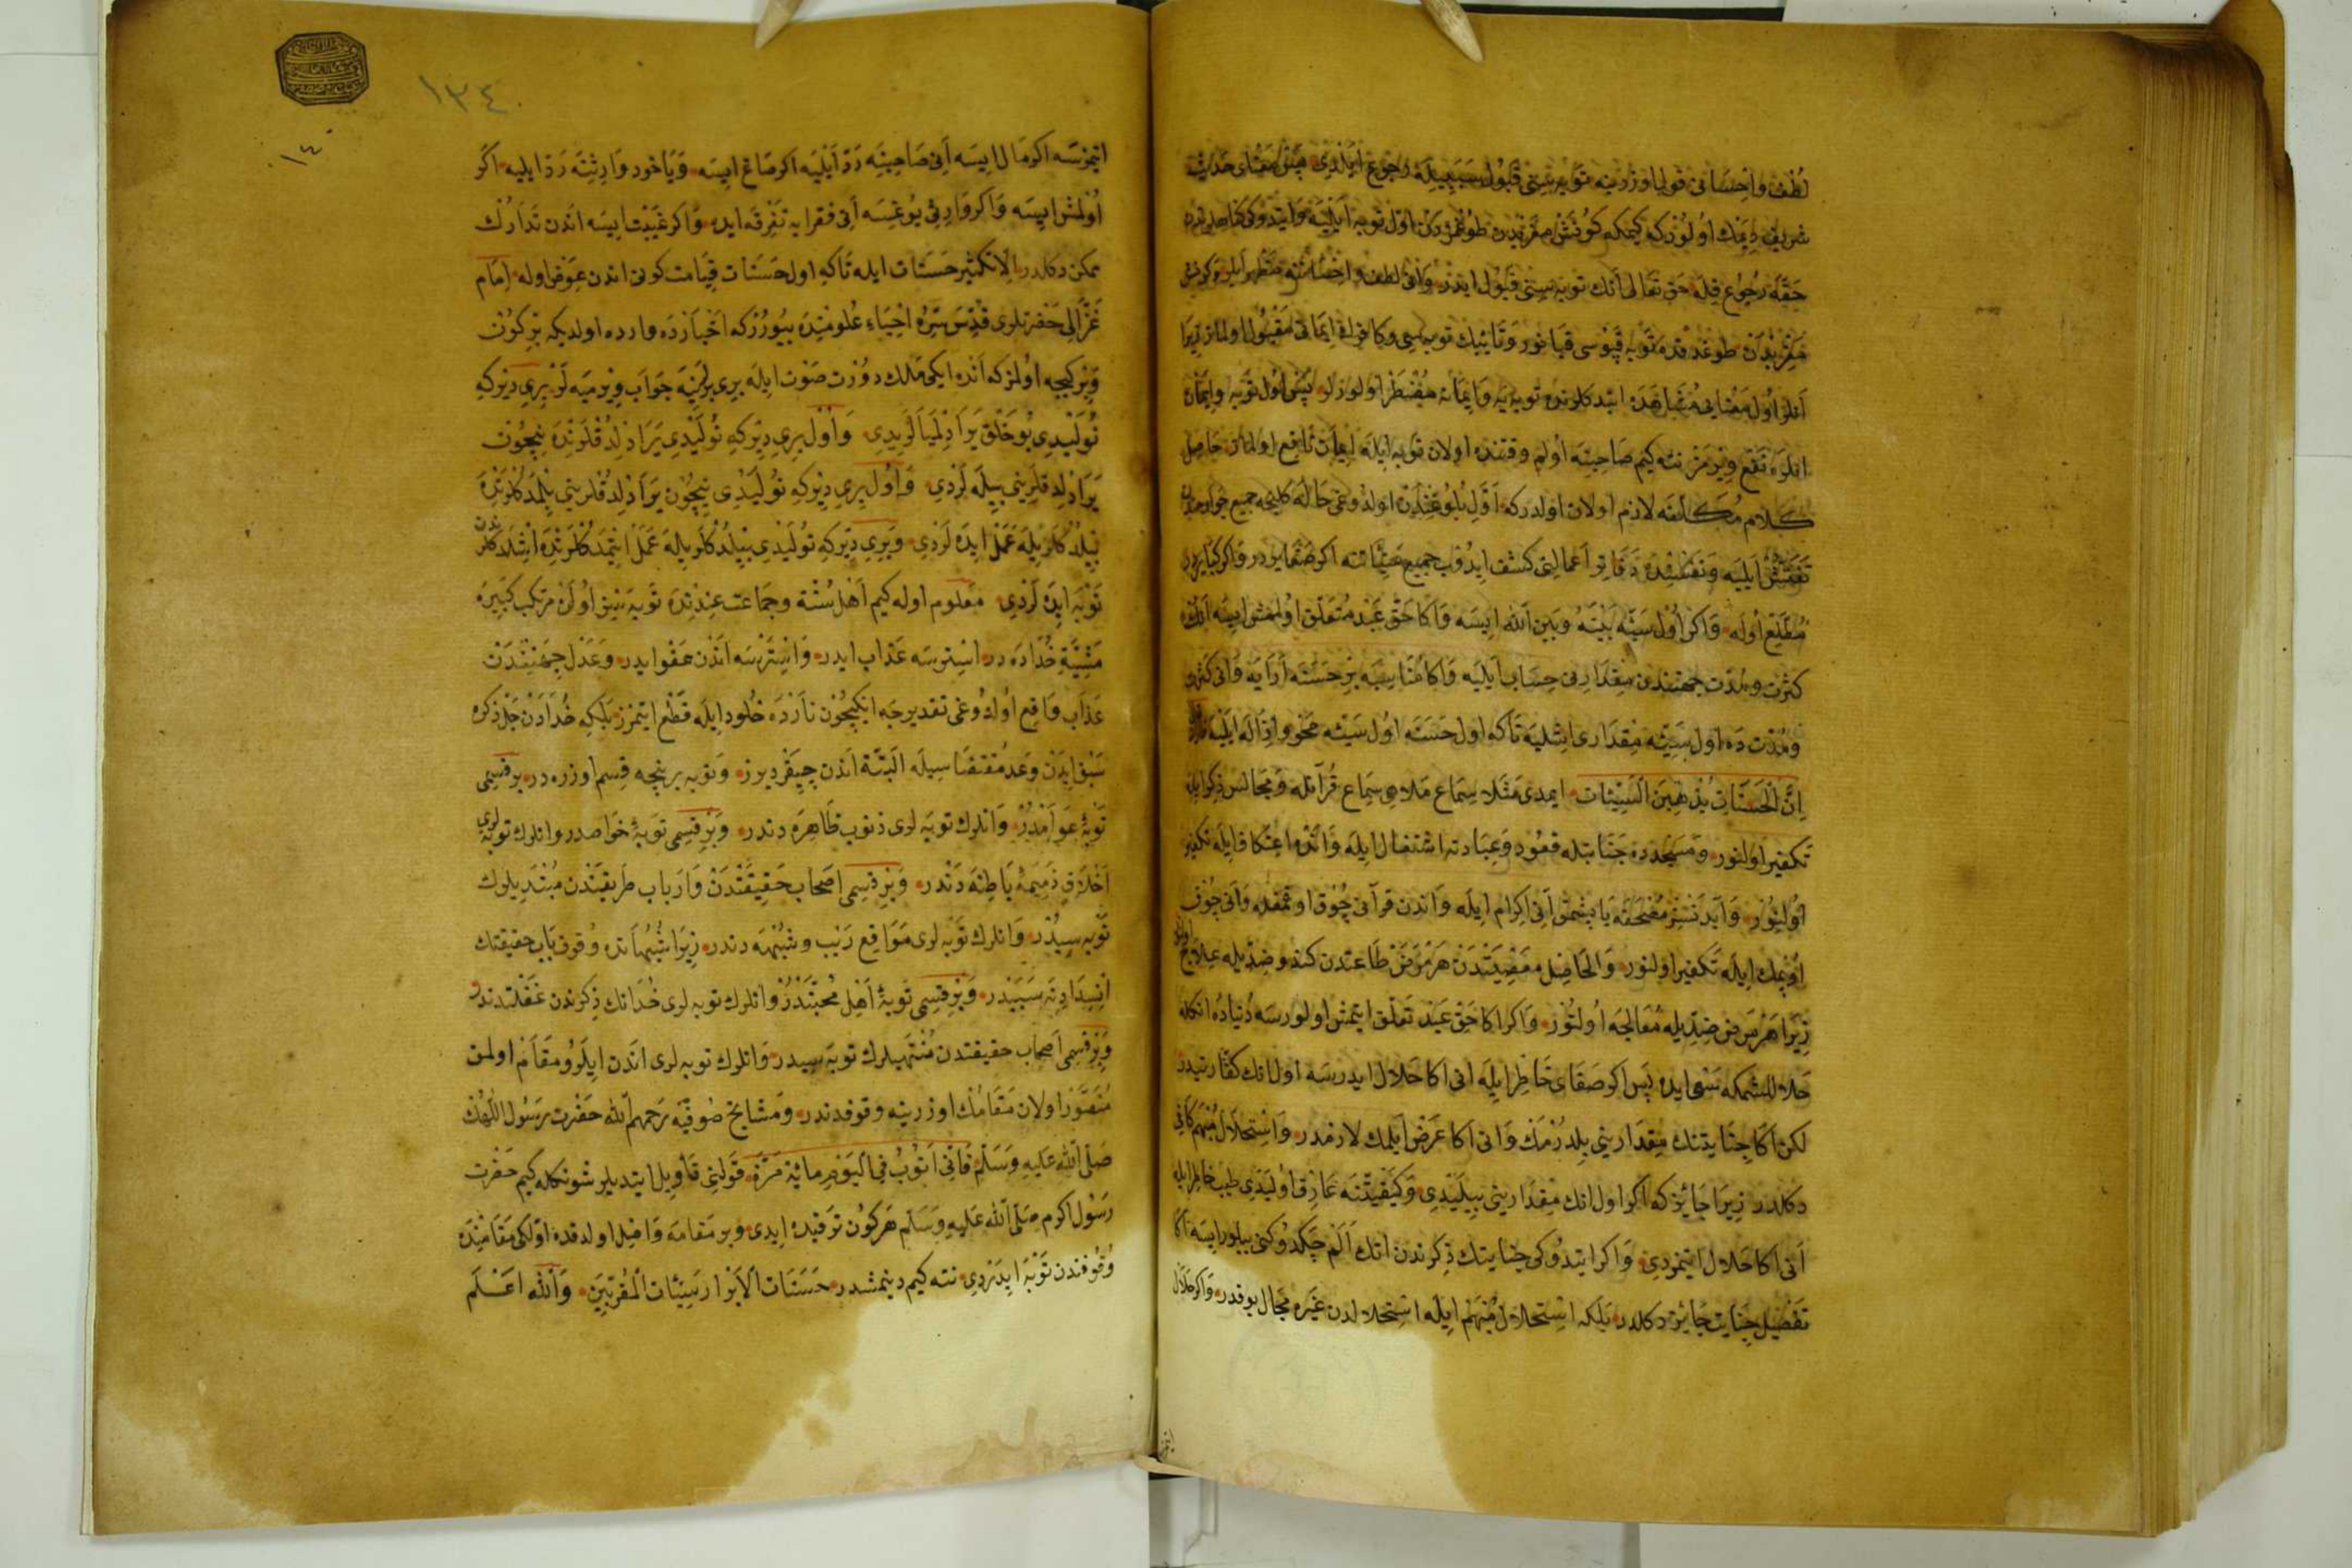 لطف و احسانی قولی اوزرینه توبه‌سنی قبول سببیله رجوع ایلدی پس معنای حدیث
شریف دیمك اولورکه کیمکه کونش مغربندن طوغمزدن اول توبه ایلیه و ایتدوکی کناهلردن
حقه رجوع قیله حق تعالی انك توبه‌سنی قبول ایدر و انی لطف و احساننه مظهر ایلر و کونش
مغربدن طوغدقده توبه قپوسی قپانور و تائبك توبه‌سی و کافرك ایمانی مقبول اولماز زیرا
انلر اول معنایی مشاهده ایتدکلرنده توبه‌یه و ایمانه مضطر اولورلر پس اول توبه و ایمان
انلره نفع ویرمز نته کیم صاحبنه اولم وقتنده اولان توبه ایله ایمان نافع اولماز حاصل
کلام مکلفه لازم اولان اولدرکه اول بلوغندن اولدوغی حاله کلنجه جمیع جوارحدن
تفتیش ایلیه و تفتیشده دقایق اعمالنی کشف ایدوب جمیع سیئاتنه اکر صغایردر و اکر کبایردر
مطلع اوله و اکر اول سیئه بینه و بین الله ایسه و اکا حق عبد متعلق اولمش ایسه انك
کثرت و مدت جهتندن مقدارنی حساب ایلیه و اکا مناسبه بر حسنه ارایه و انی کثرت
و مدت ده اول سیئه مقداری ایشلیه تا که اول حسنه اول سیئه محو و ازاله ایلیه
ان الحسنات یذهبن السیئات ایمدی مثلا سماع ملاهی سماع قرآنله و مجالس ذکر ایله
تکفیر اولنور و مسجدده جنابتله قعود و عبادته اشتغال ایله و انده اعتکاف ایله تکفیر
اولنور و ابدستسز مصحفه یاپشمق انی اکرام ایله و اندن قرآنی چوق اوقمقله و انی چوق
اوپمك ایله تکفیر اولنور و الحاصل معصیتدن هر مرض طاعتدن کندو ضدیله علاج
زیرا هر مرض ضدیله معالجه اولنور و اکر اکا حق عبد تعلق ایتمش اولورسه دنیاده انکله
حلاللشمکه سعی ایده پس اکر صفای خاطر ایله انی اکا حلال ایدرسه اول انك کفارتیدر
لکن اکا جنایتنك مقدارینی بلدرمك و انی اکا عرض ایلمك لازمدر و استحلال مبهم کافی
دکلدر زیرا جائز که اکر اول انك مقدارینی بیلیدی و کیفیتنه عارف اولیدی طیب خاطر ایله
انی اکا حلال ایتمزدی و اکر ایتدوکی جنایتك ذکرندن انك الم چکدوکنی بیلور ایسه اکا
تفصیل جنایت جائز دکلدر بلکه استحلال مبهم ایله استحلالدن غیره مجال یوقدر و اکر حلال
ایتمز
١٣٤
١٤
ایتمزسه اکر مال ایسه انی صاحبنه رد ایلیه اکر صاغ ایسه و یاخود وارثنه رد ایلیه اکر
اولمش ایسه و اکر وارثی یوغیسه انی فقرایه تفرقه ایده و اکر غیبت ایسه اندن تدارك
ممکن دکلدر الا تکثیر حسنات ایله تا که اول حسنات قیامت کونی اندن عوض اوله امام
غزالی حضرتلری قدس سره احیاء علومنده بیورر که اخبارده وارد اولدیکه بر کون
و بر کیجه اولمز که انده ایکی ملك دورت صوت ایله بری برلرینه جواب ویرمیه لر بری دیرکه
نولیدی بو خلق یرادلمیالریدی و اول بری دیرکه نولیدی یرادلدقلرنده نیچون
یرادلدقلرینی بیله لردی و اول بری دیرکه نولیدی نیچون یرادلدقلرینی بلمدکلرنده
بیلدکلریله عمل ایده لردی و بری دیرکه نولیدی بیلدکلریله عمل ایتمدکلرنده ایشلدکلرندن
توبه ایده لردی معلوم اوله کیم اهل سنت و جماعت عندنده توبه سز اولن مرتکب کبیره
مشیة خداده در استرسه عذاب ایدر و استرسه اندن عفو ایدر و عدل جهتندن
عذاب واقع اولدوغی تقدیرجه انکیچون نارده خلود ایله قطع ایتمز بلکه خدادن جل ذکره
سبق ایدن وعد مقتضاسیله البته اندن چیقر دیرز و توبه بر نیچه قسم اوزره در بر قسمی
توبه عوامدر و انلرك توبه لری ذنوب ظاهره دندر و بر قسمی توبه خواصدر و انلرك توبه لری
اخلاق ذمیمه باطنه دندر و بر قسمی اصحاب حقیقتدن و ارباب طریقتدن مبتدیلرك
توبه سیدر و انلرك توبه لری مواقع ریب و شبهه دندر زیرا شبهاتده وقوف باب حقیقتك
انسدادنه سببدر و بر قسمی توبه اهل محبتدر و انلرك توبه لری خدانك ذکرندن غفلتدندر
و بر قسمی اصحاب حقیقتدن منتهیلرك توبه سیدر و انلرك توبه لری اندن ایلرو مقام اولمق
متصور اولان مقامك اوزرینه وقوفدندر و مشایخ صوفیه رحمهم الله حضرت رسول اللهك
صلی الله علیه وسلم فانی اتوب فی الیوم مائة مرة قولنی تأویل ایتدیلر شونکله کیم حضرت
رسول اکرم صلی الله علیه وسلم هر کون ترقیده ایدی و بر مقامه واصل اولدقده اولکی مقامنده
وقوفندن توبه ایدردی نته کیم دینمشدر حسنات الابرار سیئات المقربین والله اعلم